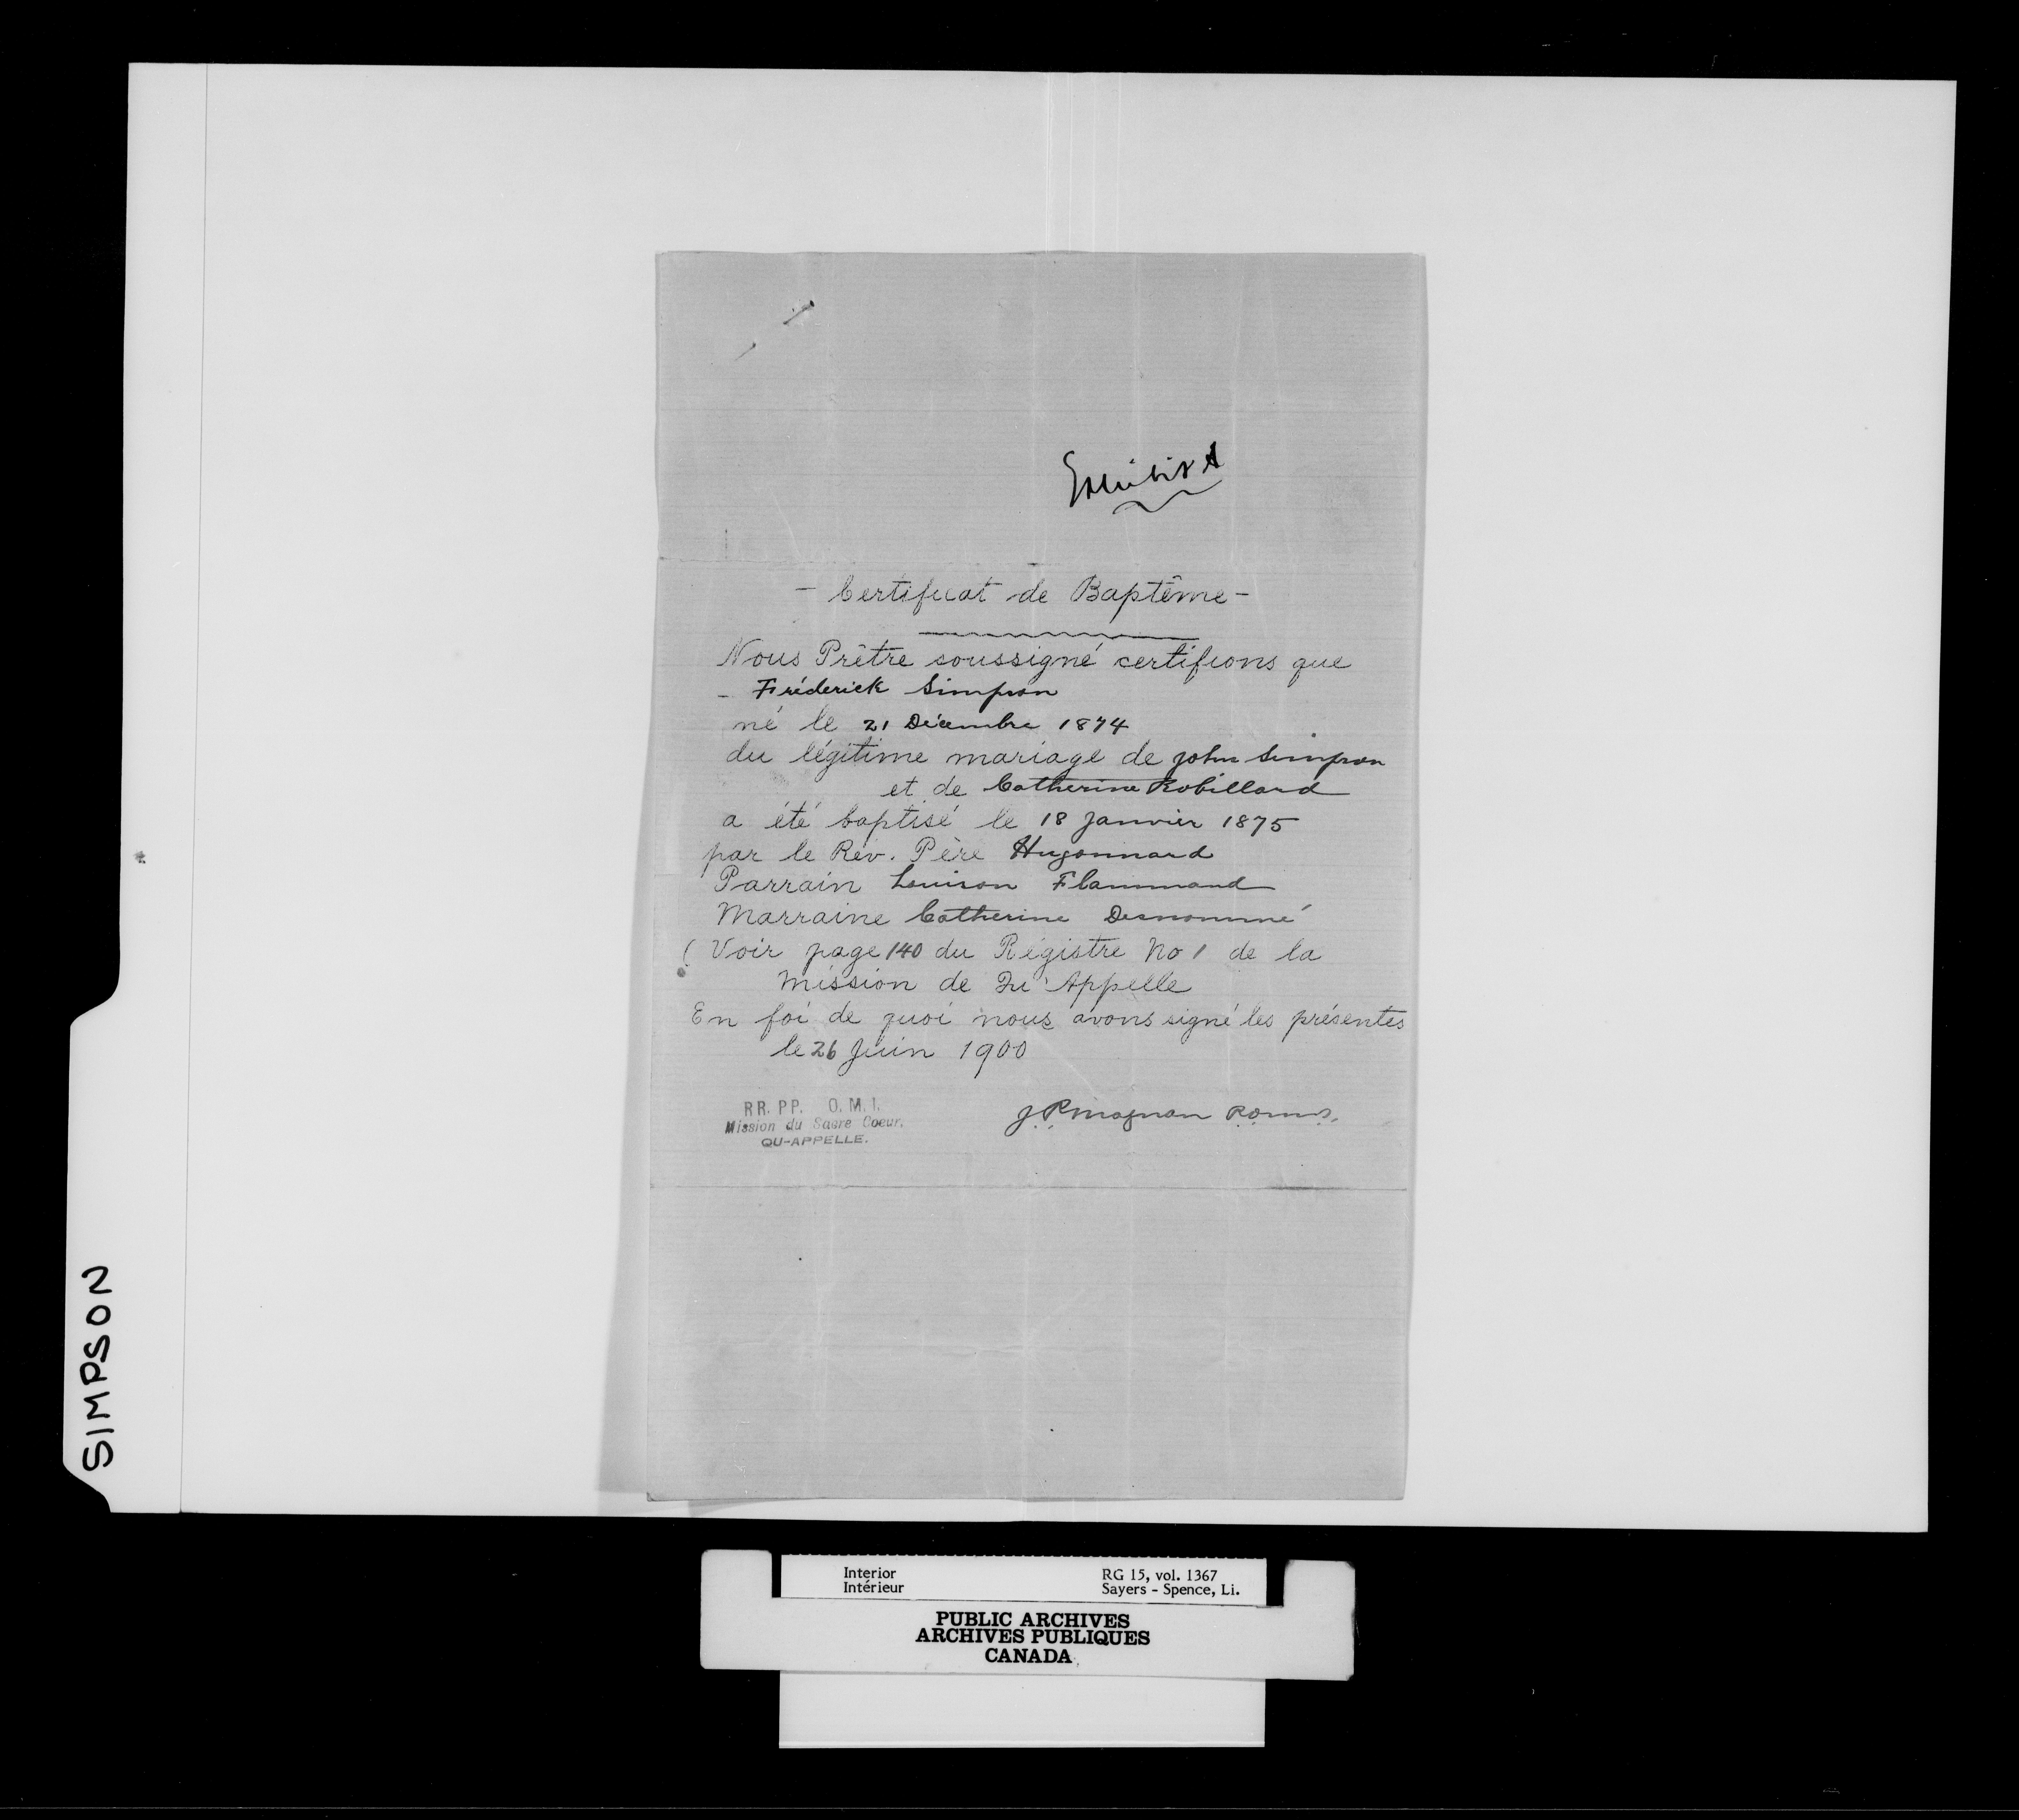 Exhibit A
- Certificat de Baptême -
Nous Prêtre soussigné certifions que
- Fréderick Simpson
né le 21 Décembre 1874
du légitime mariage de John Simpson
et de Catherine Robillard
a été baptisé le 18 Janvier 1875
par le Rév. Père Hugonnard
Parrain Louison Flammand
Marraine Catherine Desnommé
( Voir page 140 du Régistre No 1 de la
Mission de Qu'Appelle
En foi de quoi nous avons signé les présentes
le 26 Juin 1900
RR. PP. O. M. I.
Mission du Sacre Coeur.
QU-APPELLE.
J. P. Magnan P.O.M.I.
SIMPSON
Interior
Intérieur
RG 15, vol. 1367
Sayers - Spence, Li.
PUBLIC ARCHIVES
ARCHIVES PUBLIQUES
CANADA